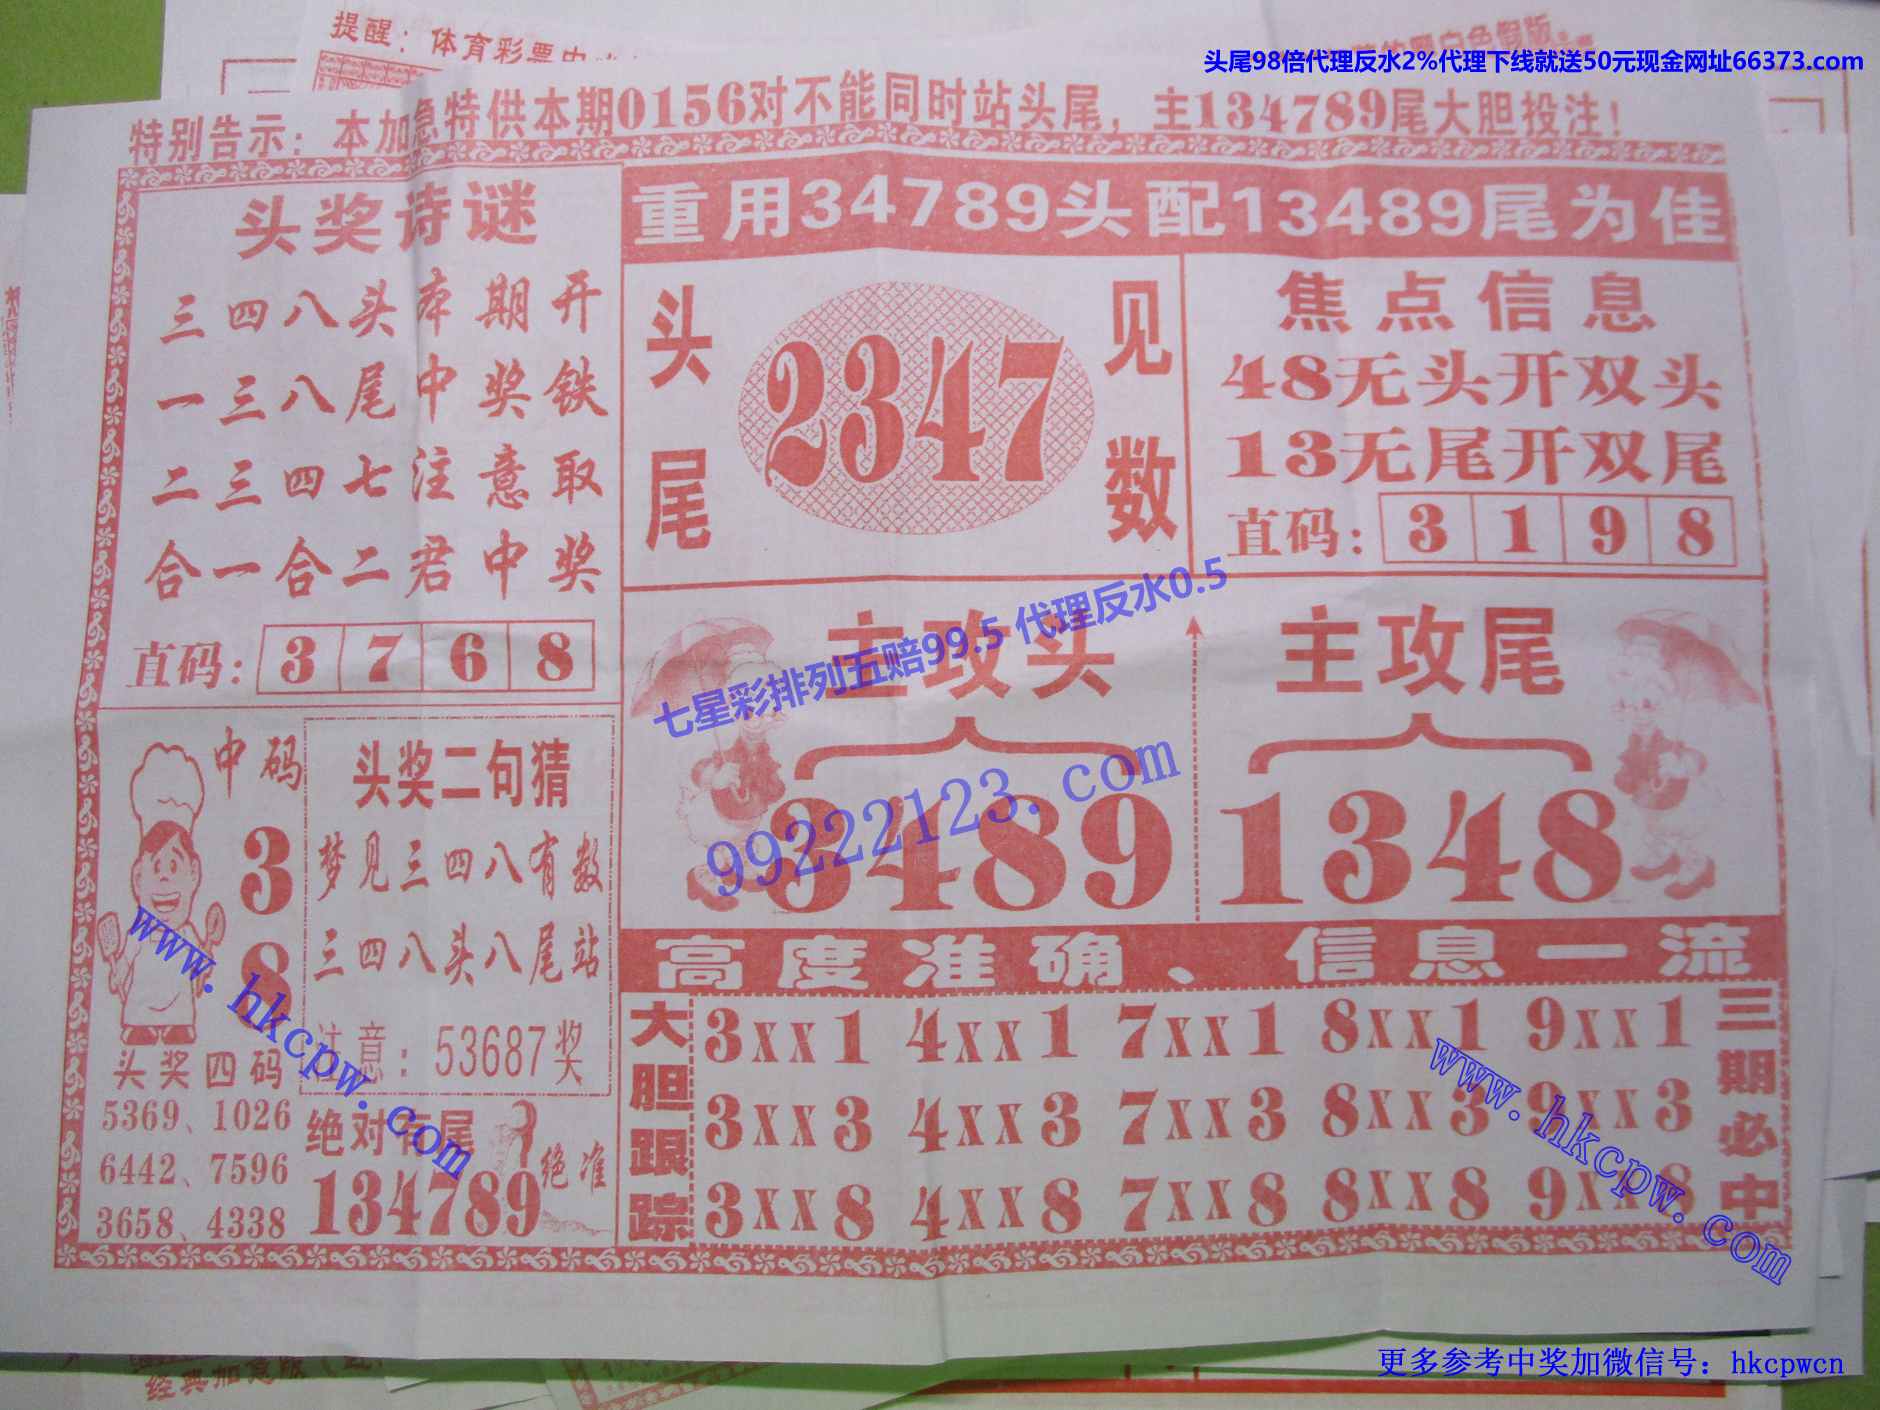 提醒：体育彩票中
头尾98倍代理反水2%代理下线就送50元现金网址66373.com
特别告示：本加急特供本期0156对不能同时站头尾，主134789尾大胆投注！
头奖诗谜
三四八头本期开
一三八尾中奖铁
二三四七注意取
合一合二君中奖
直码：3 7 6 8
重用34789头配13489尾为佳
头尾
2347
见数
焦点信息
48无头开双头
13无尾开双尾
直码：3 1 9 8
七星彩排列五赔99.5 代理反水0.5
99222123.com
主攻头
3489
主攻尾
1348
中码
3
8
头奖四码
5369、1026
6442、7596
3658、4338
头奖二句猜
梦见三四八有数
三四八头八尾站
注意：53687奖
绝对有尾
134789
绝准
www.hkcpw.com
高度准确、信息一流
大胆跟踪
3xx1 4xx1 7xx1 8xx1 9xx1
3xx3 4xx3 7xx3 8xx3 9xx3
3xx8 4xx8 7xx8 8xx8 9xx8
三期必中
www.hkcpw.com
更多参考中奖加微信号：hkcpwcn